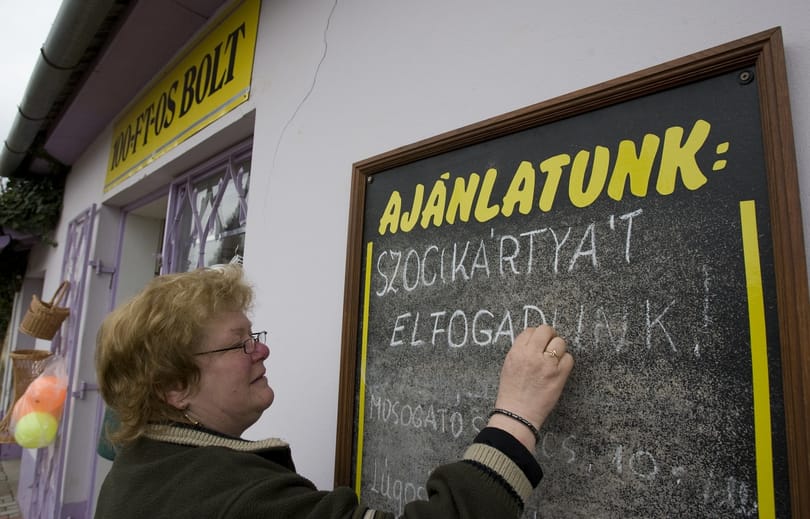 100-FT-OS BOLT
AJÁNLATUNK:
SZOCIKÁRTYÁT
ELFOGADUNK!
MOSOGATÓ